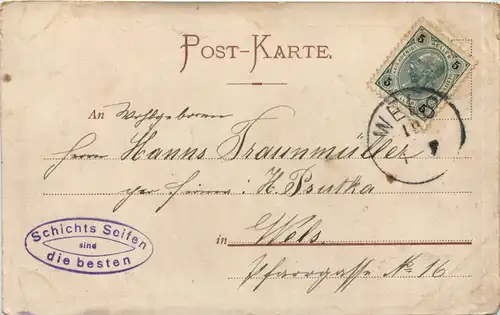 POST-KARTE.
5 5
5 5
WELS
An Wohlgeboren
Herrn Hanns Traunmüller
per Firma: H. Psutka
in Wels.
Pfarrgasse № 16
Schichts Seifen
sind
die besten